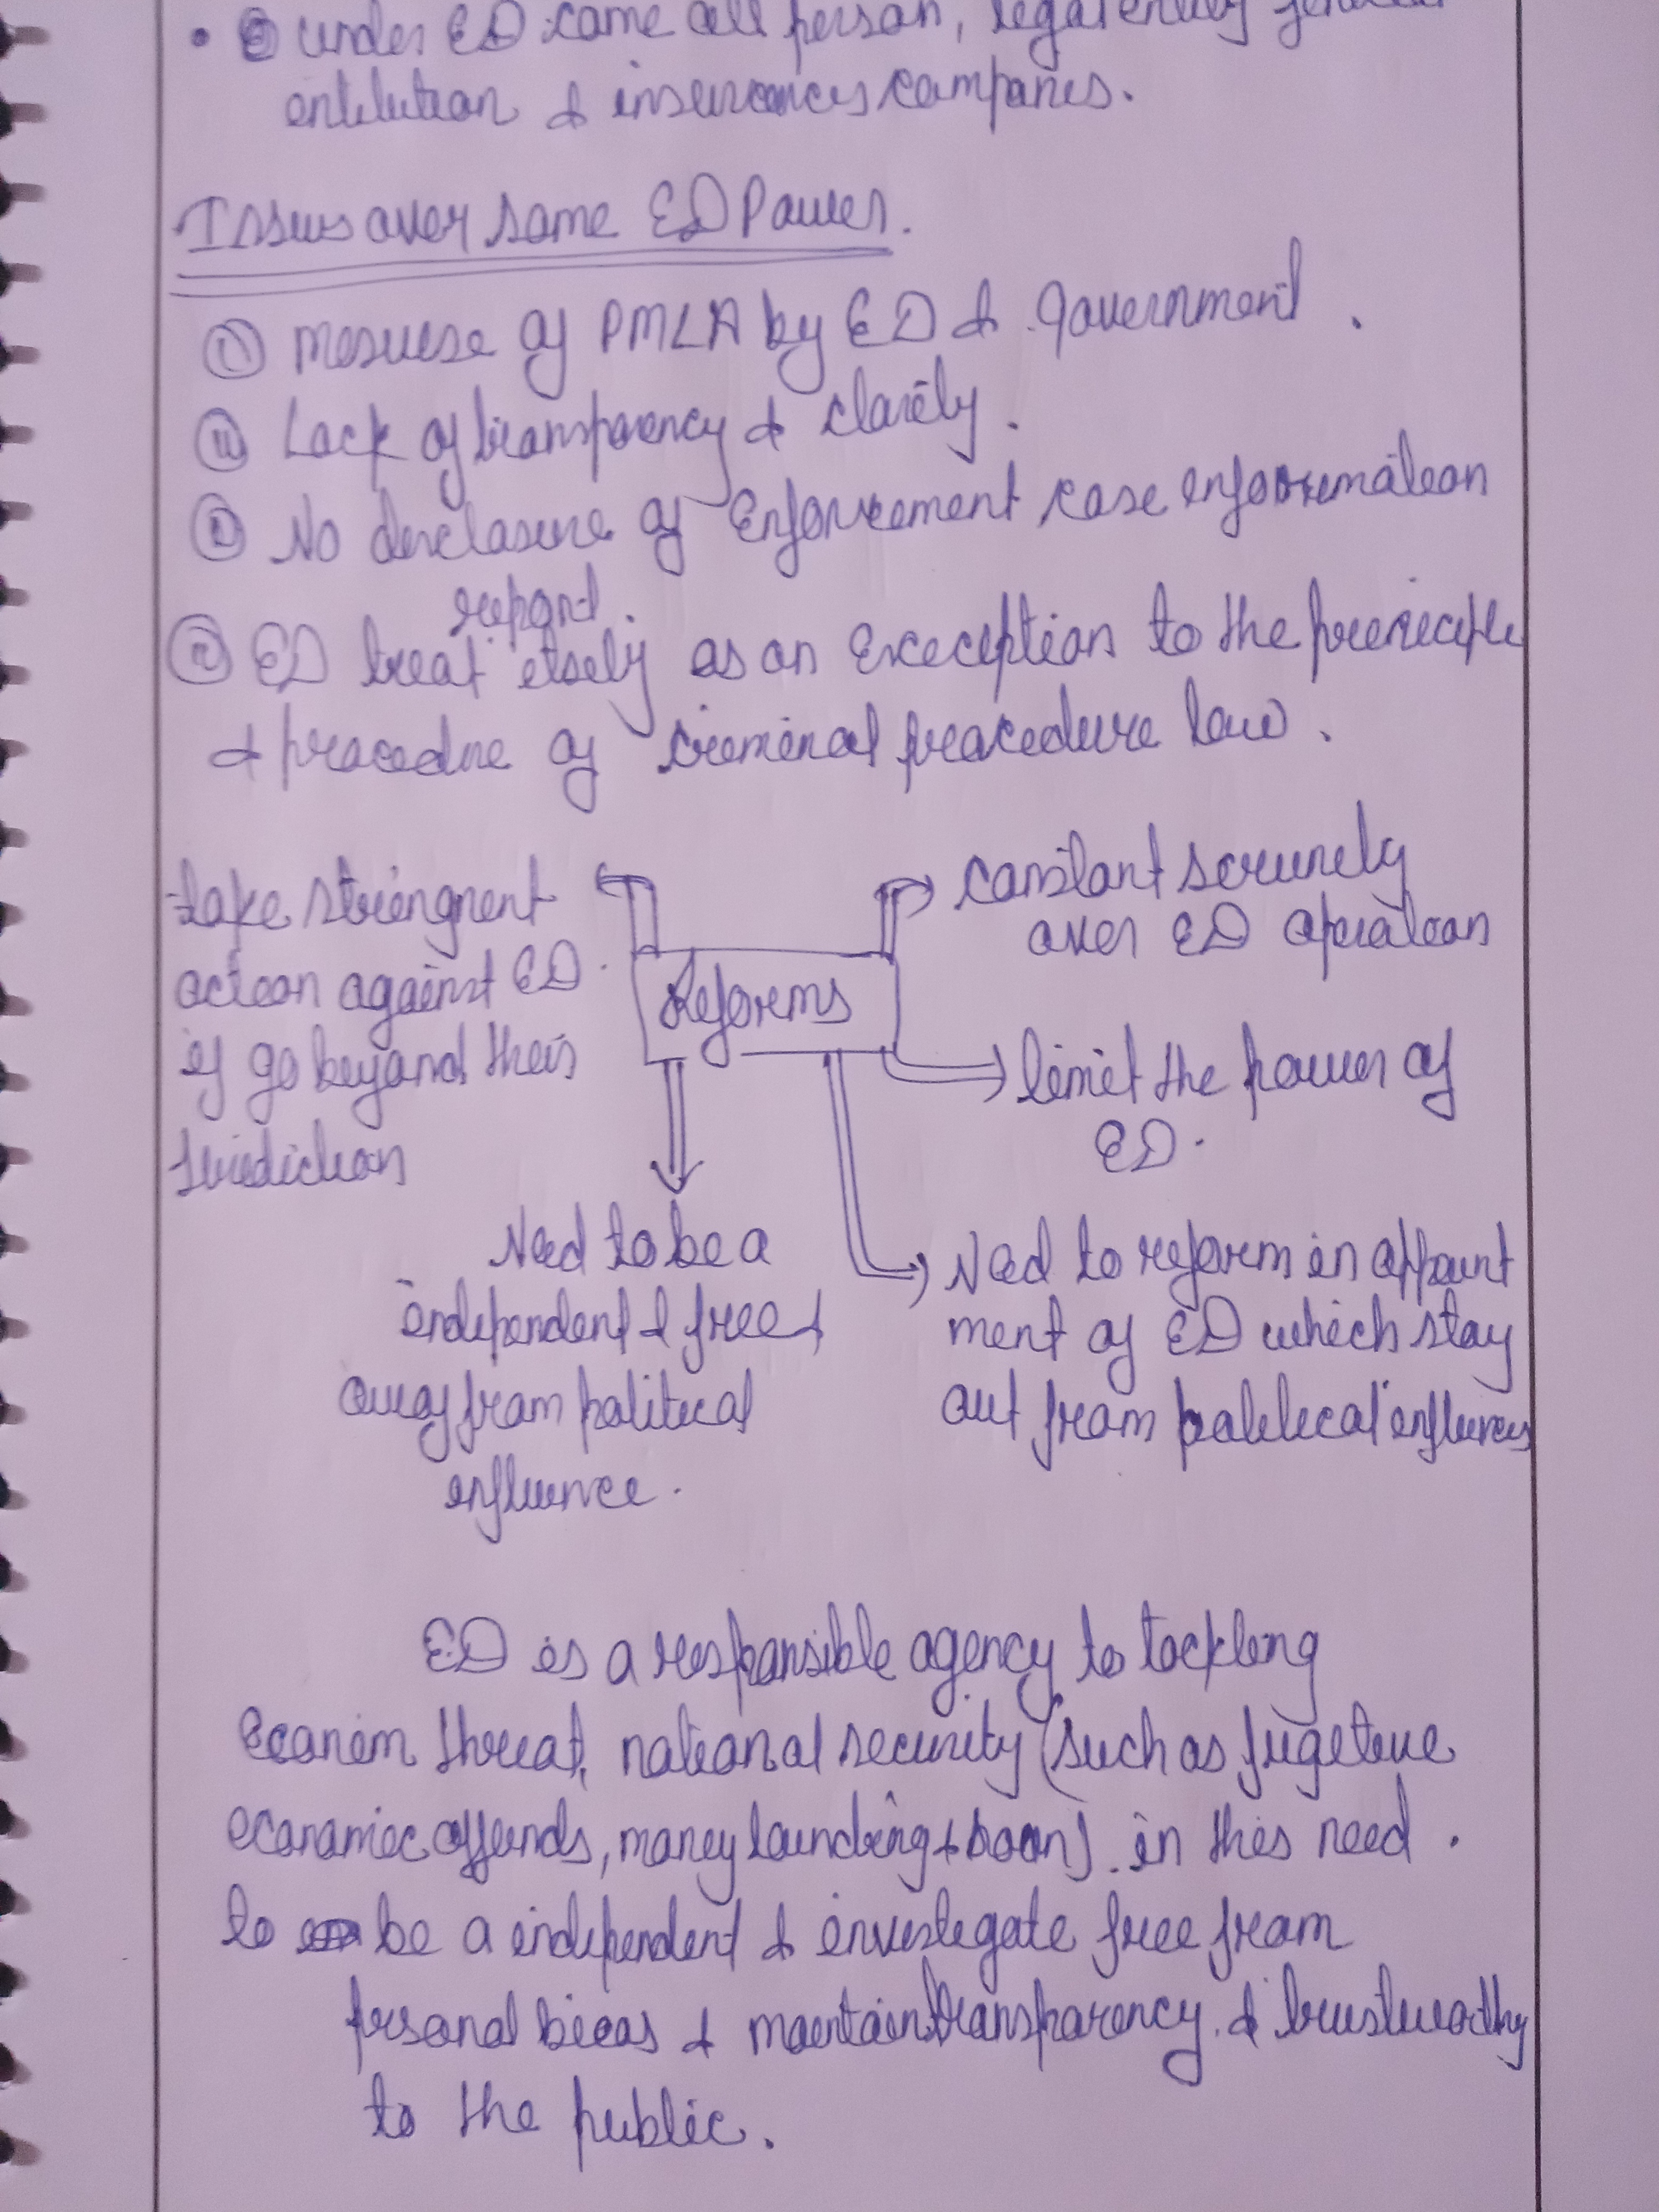 • under ED come all person, legal entity
entitution & insurances companies.
Issues over some ED Power.
① Mesuse of PMLA by ED & Government.
⑪ Lack of transparency & clarity.
No disclosure of Enforcement case information
report.
ED treat itself as an Exeception to the principle
& procedure of criminal procedure law.
take stringnent
action against ED.
if go beyond their
Juridiction
Reforms
constant scrunity
over ED operation
limit the power of
ED.
Need to be a
independent & free &
away from political
influence.
Need to reform in appoint
ment of ED which stay
out from political influences
ED is a responsible agency to tackling
Econom threat, national security (such as fugetive
economic offends, money laundring & soon). in this need.
to be a independent & investegate free from
personal bieas & maintain transparency. & trustworthy
to the public.